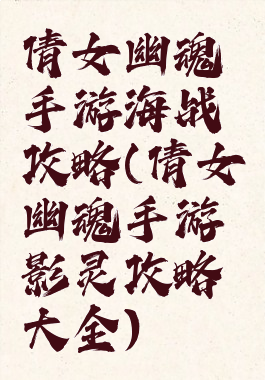 倩女幽魂
手游海战
攻略(倩女
幽魂手游
影灵攻略
大全)